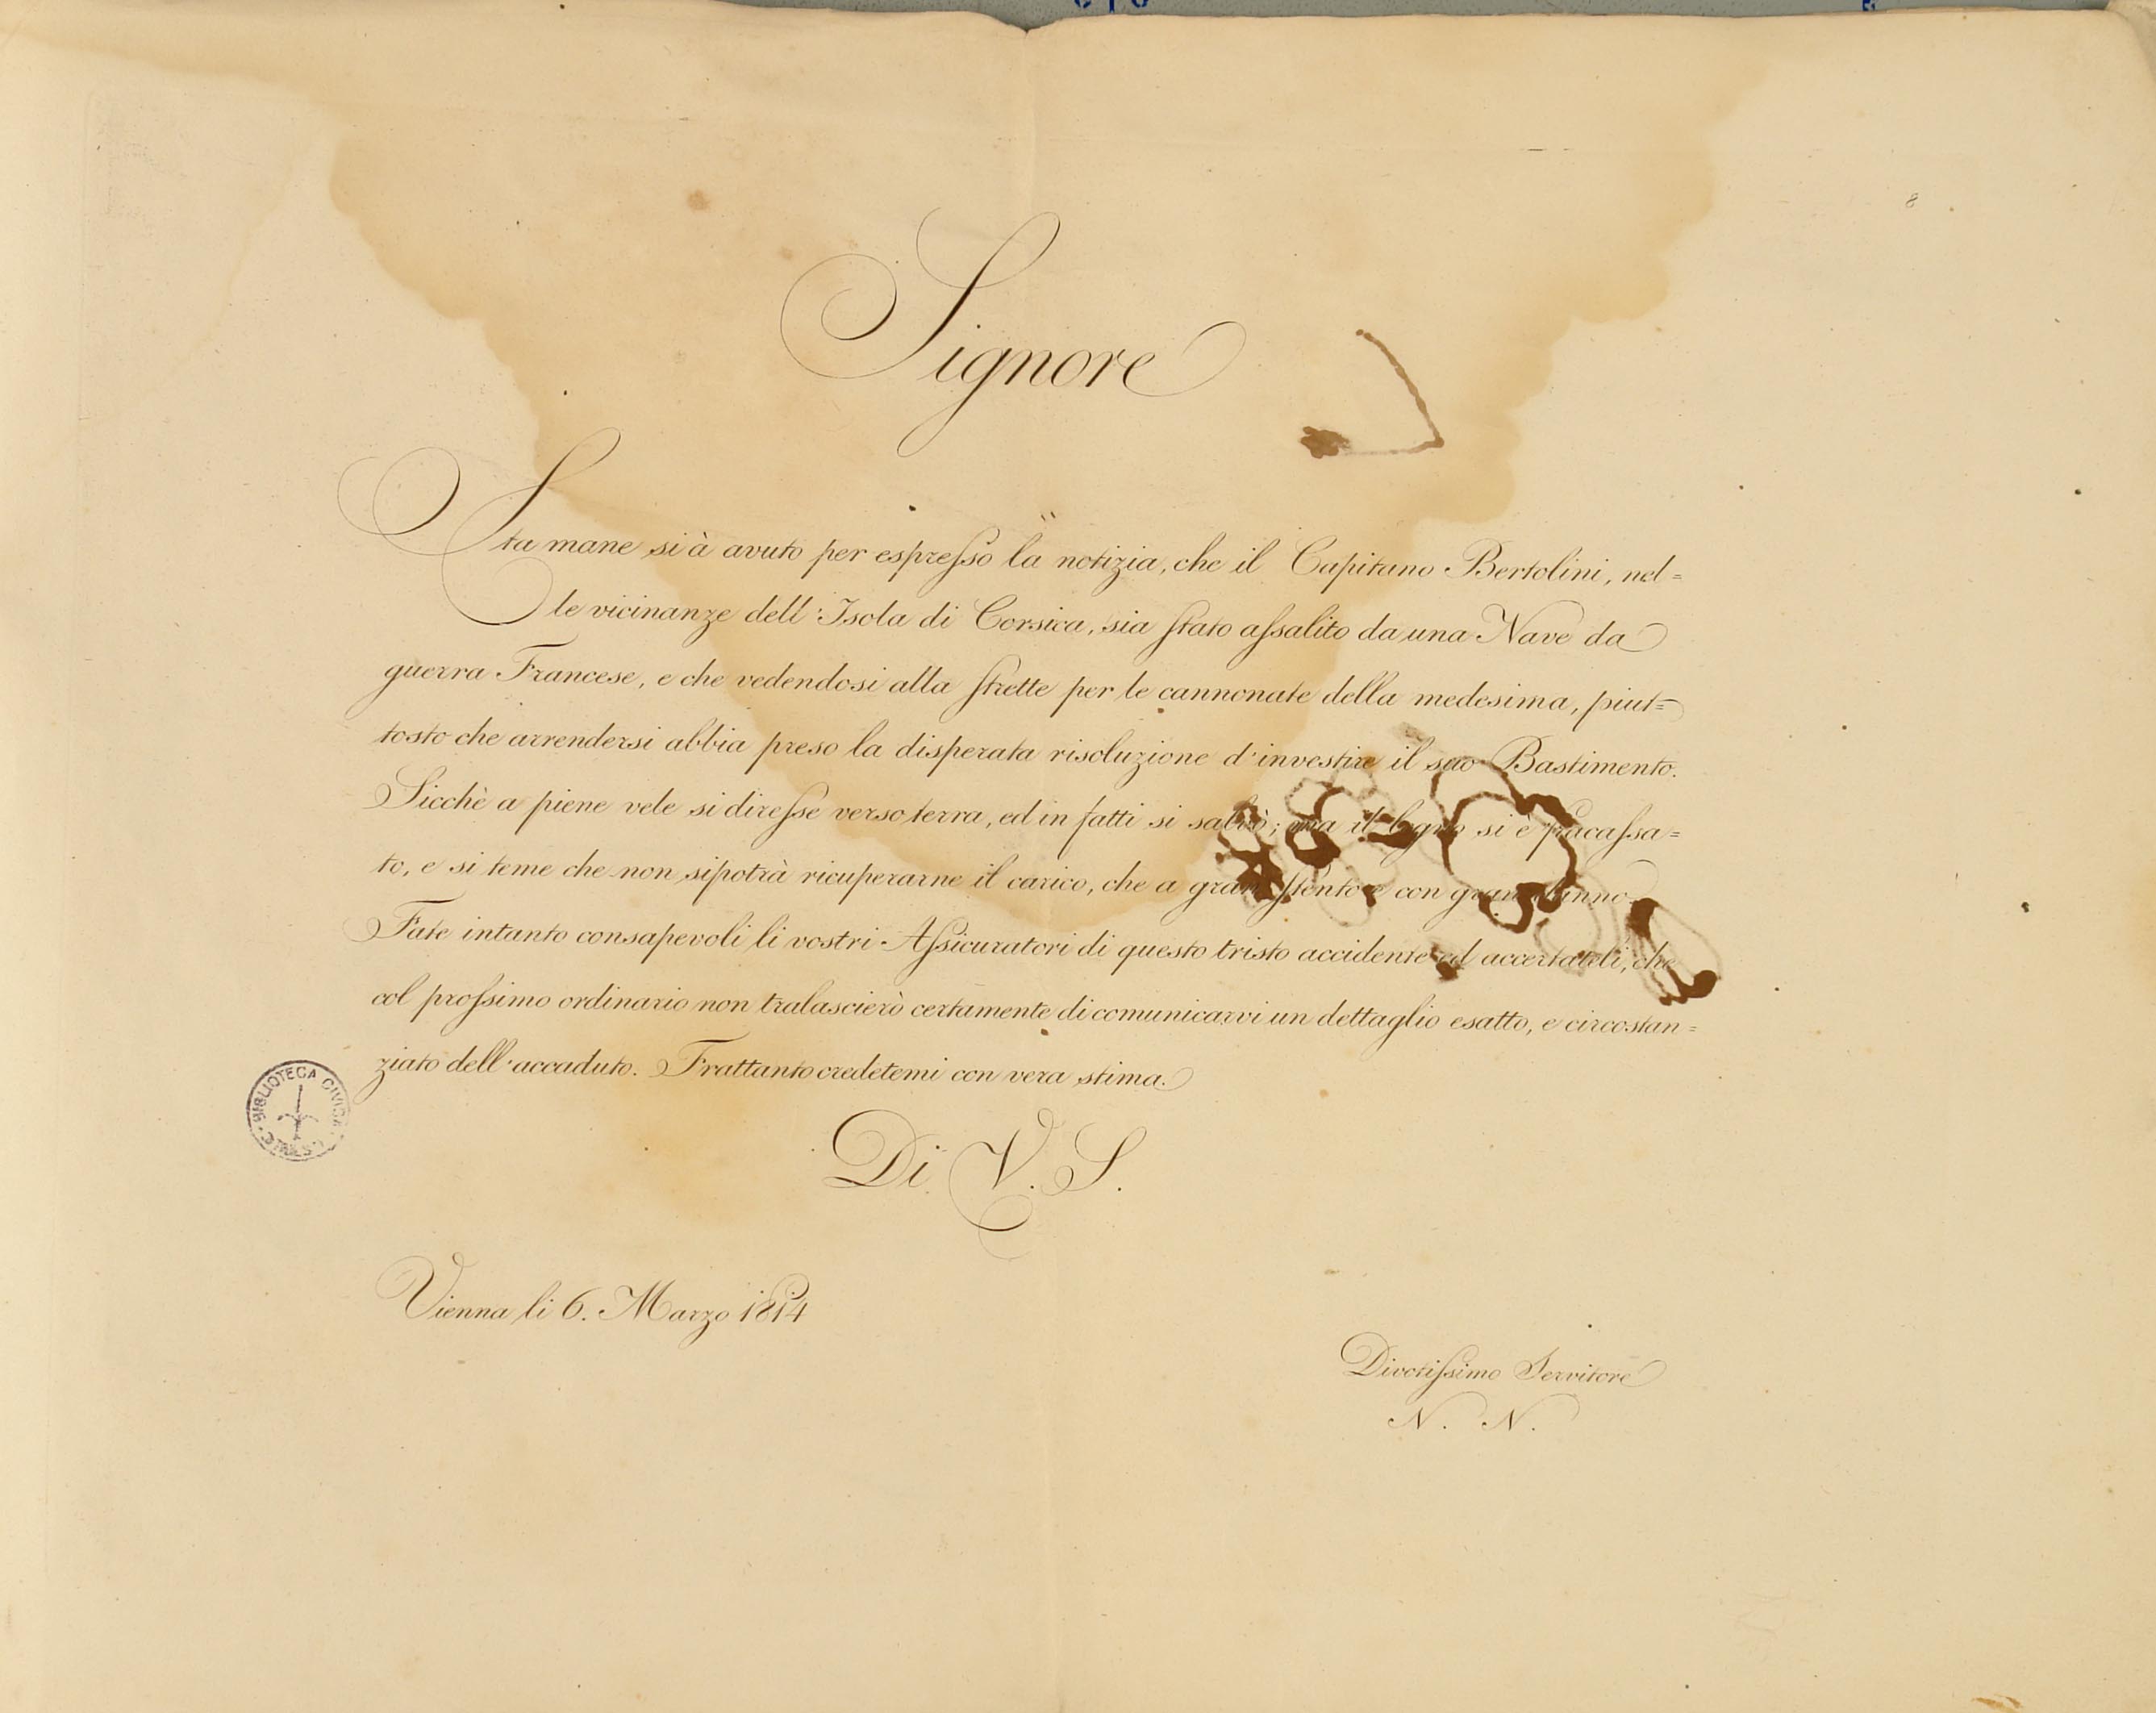 8
Signore
Sta mane si à avuto per espresso la notizia, che il Capitano Bertolini, nel=
le vicinanze dell'Isola di Corsica, sia stato assalito da una Nave da
guerra Francese, e che vedendosi alla strette per le cannonate della medesima, piut=
tosto che arrendersi abbia preso la disperata risoluzione d'investire il suo Bastimento.
Sicchè a piene vele si diresse verso terra, ed in fatti si salvò; ma il legno si è fracassa=
to, e si teme che non si potrà ricuperarne il carico, che a gran stento e con gran danno.
Fate intanto consapevoli li vostri Assicuratori di questo tristo accidente ed accertateli, che
col prossimo ordinario non tralascierò certamente di comunicarvi un dettaglio esatto, e circostan=
ziato dell'accaduto. Frattanto credetemi con vera stima.
Di V. S.
Vienna li 6. Marzo 1814
Divotissimo Servitore
N. N.
BIBLIOTECA CIVICA